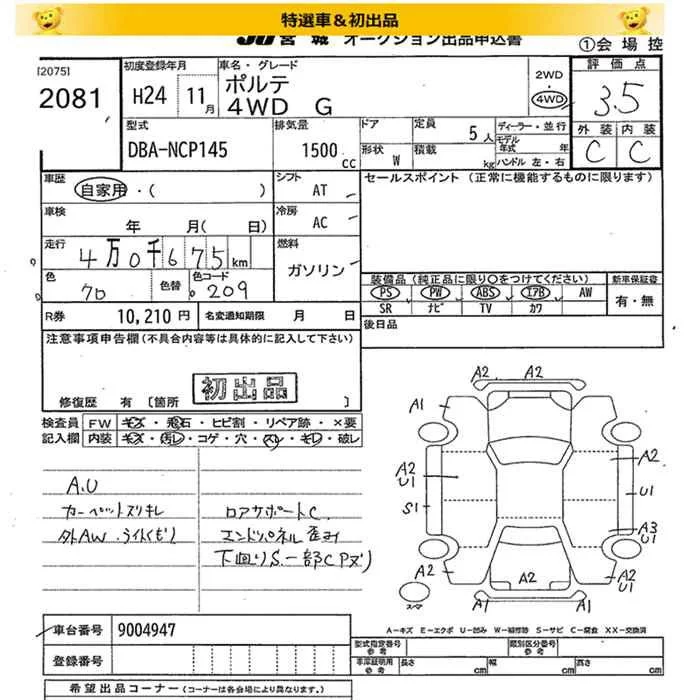 特選車&初出品
JU 宮城 オークション出品申込書
①会場控
[2075]
2081
初度登録年月
H24 11月
車名・グレード
ポルテ
4WD G
2WD
・
4WD
評価点
3.5
外装 内装
C C
型式
DBA-NCP145
排気量
1500 cc
ドア
形状 W
定員 5人
積載 kg
ディーラー・並行
モデル年式 年
ハンドル 左・右
車歴
自家用・( )
シフト
AT
車検
年 月( 日)
冷房
AC
走行
4万0千675km
燃料
ガソリン
色 色替 色コード
209
セールスポイント (正常に機能するものに限ります)
装備品(純正品に限り○をつけてください)
新車保証書
PS PW ABS エアB AW
SR ナビ TV カワ
有・無
R券 10,210円
名変通知期限 月 日
後日品
注意事項申告欄(不具合内容等は具体的に記入して下さい)
初出品
修復歴 有 [箇所 ]
検査員記入欄
FW キズ・飛石・ヒビ割・リペア跡・×要
内装 キズ・汚レ・コゲ・穴・スレ・キレ・破レ
A.U
カーペットスリキレ
外AW.ライトくもり
ロアサポートC.
エンドパネル歪み
下回りS.一部CPヌリ
A2
A2
A1
A2
A2
U1
U1
S1
A3
U1
A2
A2
A2
U1
A1
A1
スマ
A-キズ E-エクボ U-凹み W-補修跡 S-サビ C-腐食 XX-交換済
車台番号 9004947
登録番号
型式指定番号 参考
類別区分番号 参考
車庫証明用 参考
長さ cm
幅 cm
高さ cm
希望出品コーナー(コーナーは各会場により異なります。)